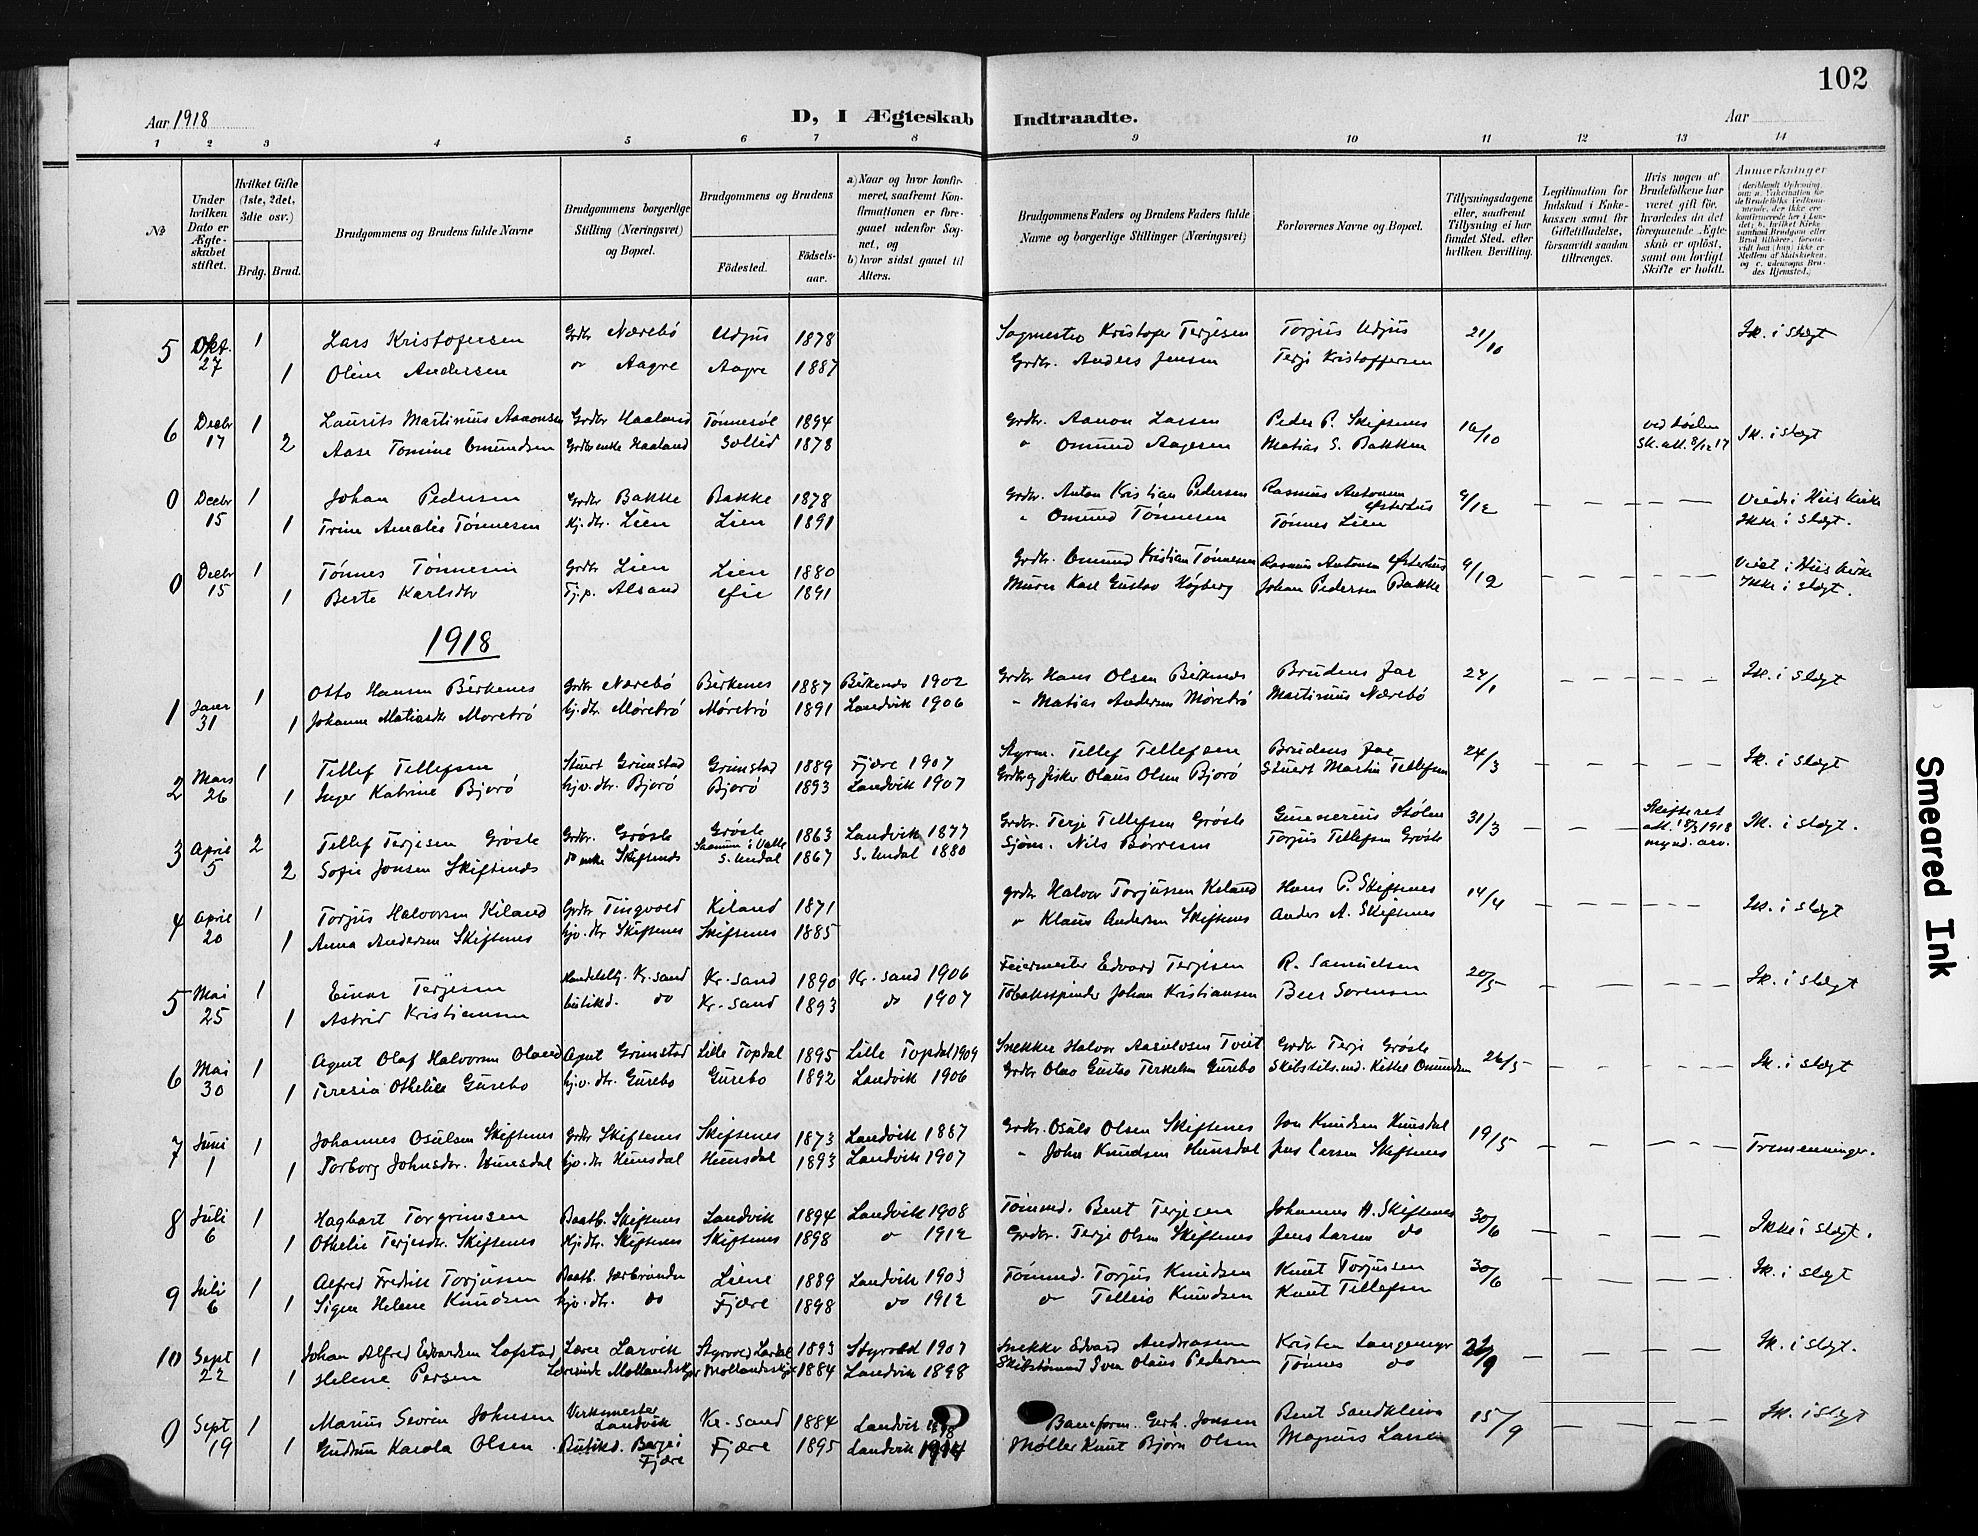 102
Aar 1918
D, I Ægteskab Indtraadte.
Aar
1 2 3 4 5 6 7 8 9 10 11 12 13 14
No
Under hvilken Dato er Ægteskabet stiftet.
Hvilket Gifte (1ste, 2det, 3die osv.)
Brdg. Brud.
Brudgommens og Brudens fulde Navne
Brudgommens borgerlige Stilling (Næringsvei) og Bopæl.
Brudgommens og Brudens
Fødested. Fødselsaar.
a) Naar og hvor konfirmeret, saafremt Konfirmationen er foregaaet udenfor Sognet, og
b) hvor sidst gaaet til Alters.
Brudgommens Faders og Brudens Faders fulde Navne og borgerlige Stillinger (Næringsvei)
Forlovernes Navne og Bopæl.
Tillysningsdagene eller, saafremt Tillysning ei har fundet Sted, efter hvilken Bevilling.
Legitimation for Indskud i Enkekassen samt for Giftetilladelse, forsaavidt saadan tiltrænges.
Hvis nogen af Brudefolkene har været gift før, hvorledes da det foregaaende Ægteskab er opløst, samt om lovligt Skifte er holdt.
Anmærkninger
5 Okt. 27 1 Lars Kristofersen Grdbr Nærebø Udjus 1878 Sagmester Kristofer Terjesen Torjus Udjus 21/10 Ik. i slægt
1 Oline Andersen do Aagre Aagre 1887 Grdbr. Anders Jensen Terje Kristoffersen
6 Decbr 17 1 Laurits Martinius Aanonsen Grdbr Haaland Tønnesøl 1894 Grdbr. Aanon Larsen Peder P. Skiftenes 16/10 ved døden Ik. i slægt
2 Aase Tomine Omundsen Grdbrenke Haaland Sollid 1878 " Omund Aagesen Matias S. Bakken Sk.att. 8/12 17
0 Decbr 15 1 Johan Pedersen Grdbr Bakke Bakke 1878 Grdbr. Anton Kristian Pedersen Rasmus Antonsen Østerhus 9/12 Viede i Hiis Kirke
1 Trine Amalie Tønnesen Hj.dtr. Lien Lien 1891 " Omund Tønnesen Tønnes Lien Ikke i slægt.
0 Decbr 15 1 Tønnes Tønnesen Grdbr Lien Lien 1880 Grdbr. Omund Kristian Tønnesen Rasmus Antonsen Østerhus 9/12 Viet i Hiis Kirke
1 Berte Karlsdtr Tj.p. Alsand Øie 1891 Murer Karl Gustav Højberg Johan Pedersen Bakke Ikke i slægt.
1918
1 Janr 31 1 Otto Hansen Birkenes Grdbr Nærebø Birkenes 1887 Birkenes 1902 Grdbr Hans Olsen Birkenes Brudens Far 27/1 Ik. i slægt
1 Johanne Matiasdtr Morebrö hj.dtr Mørebrö Mørebrö 1891 Landvik 1906 " Matias Andersen Mørebrö Martinius Nærebö
2 Mars 26 1 Tellef Tellefsen Stuert Grimstad Grimstad 1889 Fjære 1907 Styrm. Tellef Tellefsen Brudens Far 24/3 Ik. i slægt
1 Inger Katrine Bjorö hjv.dtr. Bjorö Bjorö 1893 Landvik 1907 Grdbr og fisker Olaus Olsen Bjorö Stuert Martin Tellefsen
3 April 5 2 Tellef Terjesen Grösle Grdbr. Grösle Grösle 1863 Landvik 1877 Grdbr. Terje Tellefsen Grösle Gunnerius Stölen 31/3 Skifteret att. 18/3 1918 Ik. i slægt.
2 Sofie Jonsen Skiftenes do enke Skiftenes S. Undal 1867 S. Undal 1880 Sjöm. Nils Børresen Torjus Tellefsen Grösle
4 April 20 1 Torjus Halvorsen Kiland Grdbr Tingvold Kiland 1871 grdbr Halvor Torjussen Kiland Hans P. Skiftenes 14/4 Ik. i slægt
1 Anna Andersen Skiftenes hjv.dtr Skiftenes Skiftenes 1885 " Klaus Andersen Skiftenes Anders A. Skiftenes
5 Mai 25 1 Einar Terjesen Handelsbtj. Kr.sand Kr.sand 1890 Kr.sand 1906 Feiermester Edvard Terjesen R. Samuelsen 20/5 Ik. i slægt
1 Astrid Kristiansen butikd. do Kr.sand 1893 do 1907 Tobaksspinder Johan Kristiansen Beer Sorensen
6 Mai 30 1 Agent Olaf Halvorsen Oland Agent Grimstad Lille Topdal 1895 Lille Topdal 1909 Snekker Halvor Aasulvsen Tveit Grdbr Terje Grösle 26/5 Ik. i slægt
1 Teresia Othelie Gurebo hjv.dtr. Gurebo Gurebo 1892 Landvik 1906 Grdbr Olav Gustav Terkelsen Gurebo Skibstilsmd. Kittel Omundsen
7 Juni 1 1 Johannes Osulsen Skiftenes Grdbr Skiftenes Skiftenes 1873 Landvik 1887 Grdbr. Osuls Olsen Skiftenes Jon Knudsen Hunsdal 19/5 Tremenninger.
1 Torborg Johnsdtr. Hunsdal hjv.dtr Hunsdal Hunsdal 1893 Landvik 1907 " John Knudsen Hunsdal Jens Larsen Skiftenes
8 Juli 6 1 Hagbart Torgrimsen Baatb. Skiftenes Landvik 1894 Landvik 1908 Tømmd. Bent Terjesen Johannes H. Skiftenes 30/6 Ikke i slægt.
1 Othelie Terjesdtr. Skiftenes Hj.dtr. Skiftenes Skiftenes 1898 do 1912 Grdbr. Terje Olsen Skiftenes Jens Larsen do
9 Juli 6 1 Alfred Fredrik Torjussen Baatb. Liene 1889 Landvik 1903 Tømmd. Torjus Knudsen Knut Torjussen 30/6 Ik. i slægt
1 Signe Helene Knudsen hjv.dtr. do Fjære 1898 do 1912 do Tellev Knudsen Knut Tellefsen
10 Sept 22 1 Johan Alfred Edvardsen Lofstad Lærer Larvik Styrvold Lardal 1893 Styrvold 1907 Snekker Edvard Andreasen Kristen Langemyr /9 Ik. i slægt.
1 Helene Persen Lærerinde Mollandskjer Mollandskjer 1884 Landvik 1898 Skibstømmd Sven Olaus Pedersen Tønnes do
0 Sept 19 1 Marius Severin Johnsen Verksmester Landvik Kr.sand 1884 Landvik Baneform. Gerh. Jonsen Bent Sandkleiva 15/9 Ik. i slægt
1 Gudrun Karola Olsen Butikd. Berge i Fjære Fjære 1895 Landvik Møller Knut Bjørn Olsen Magnus Larsen
Smeared Ink